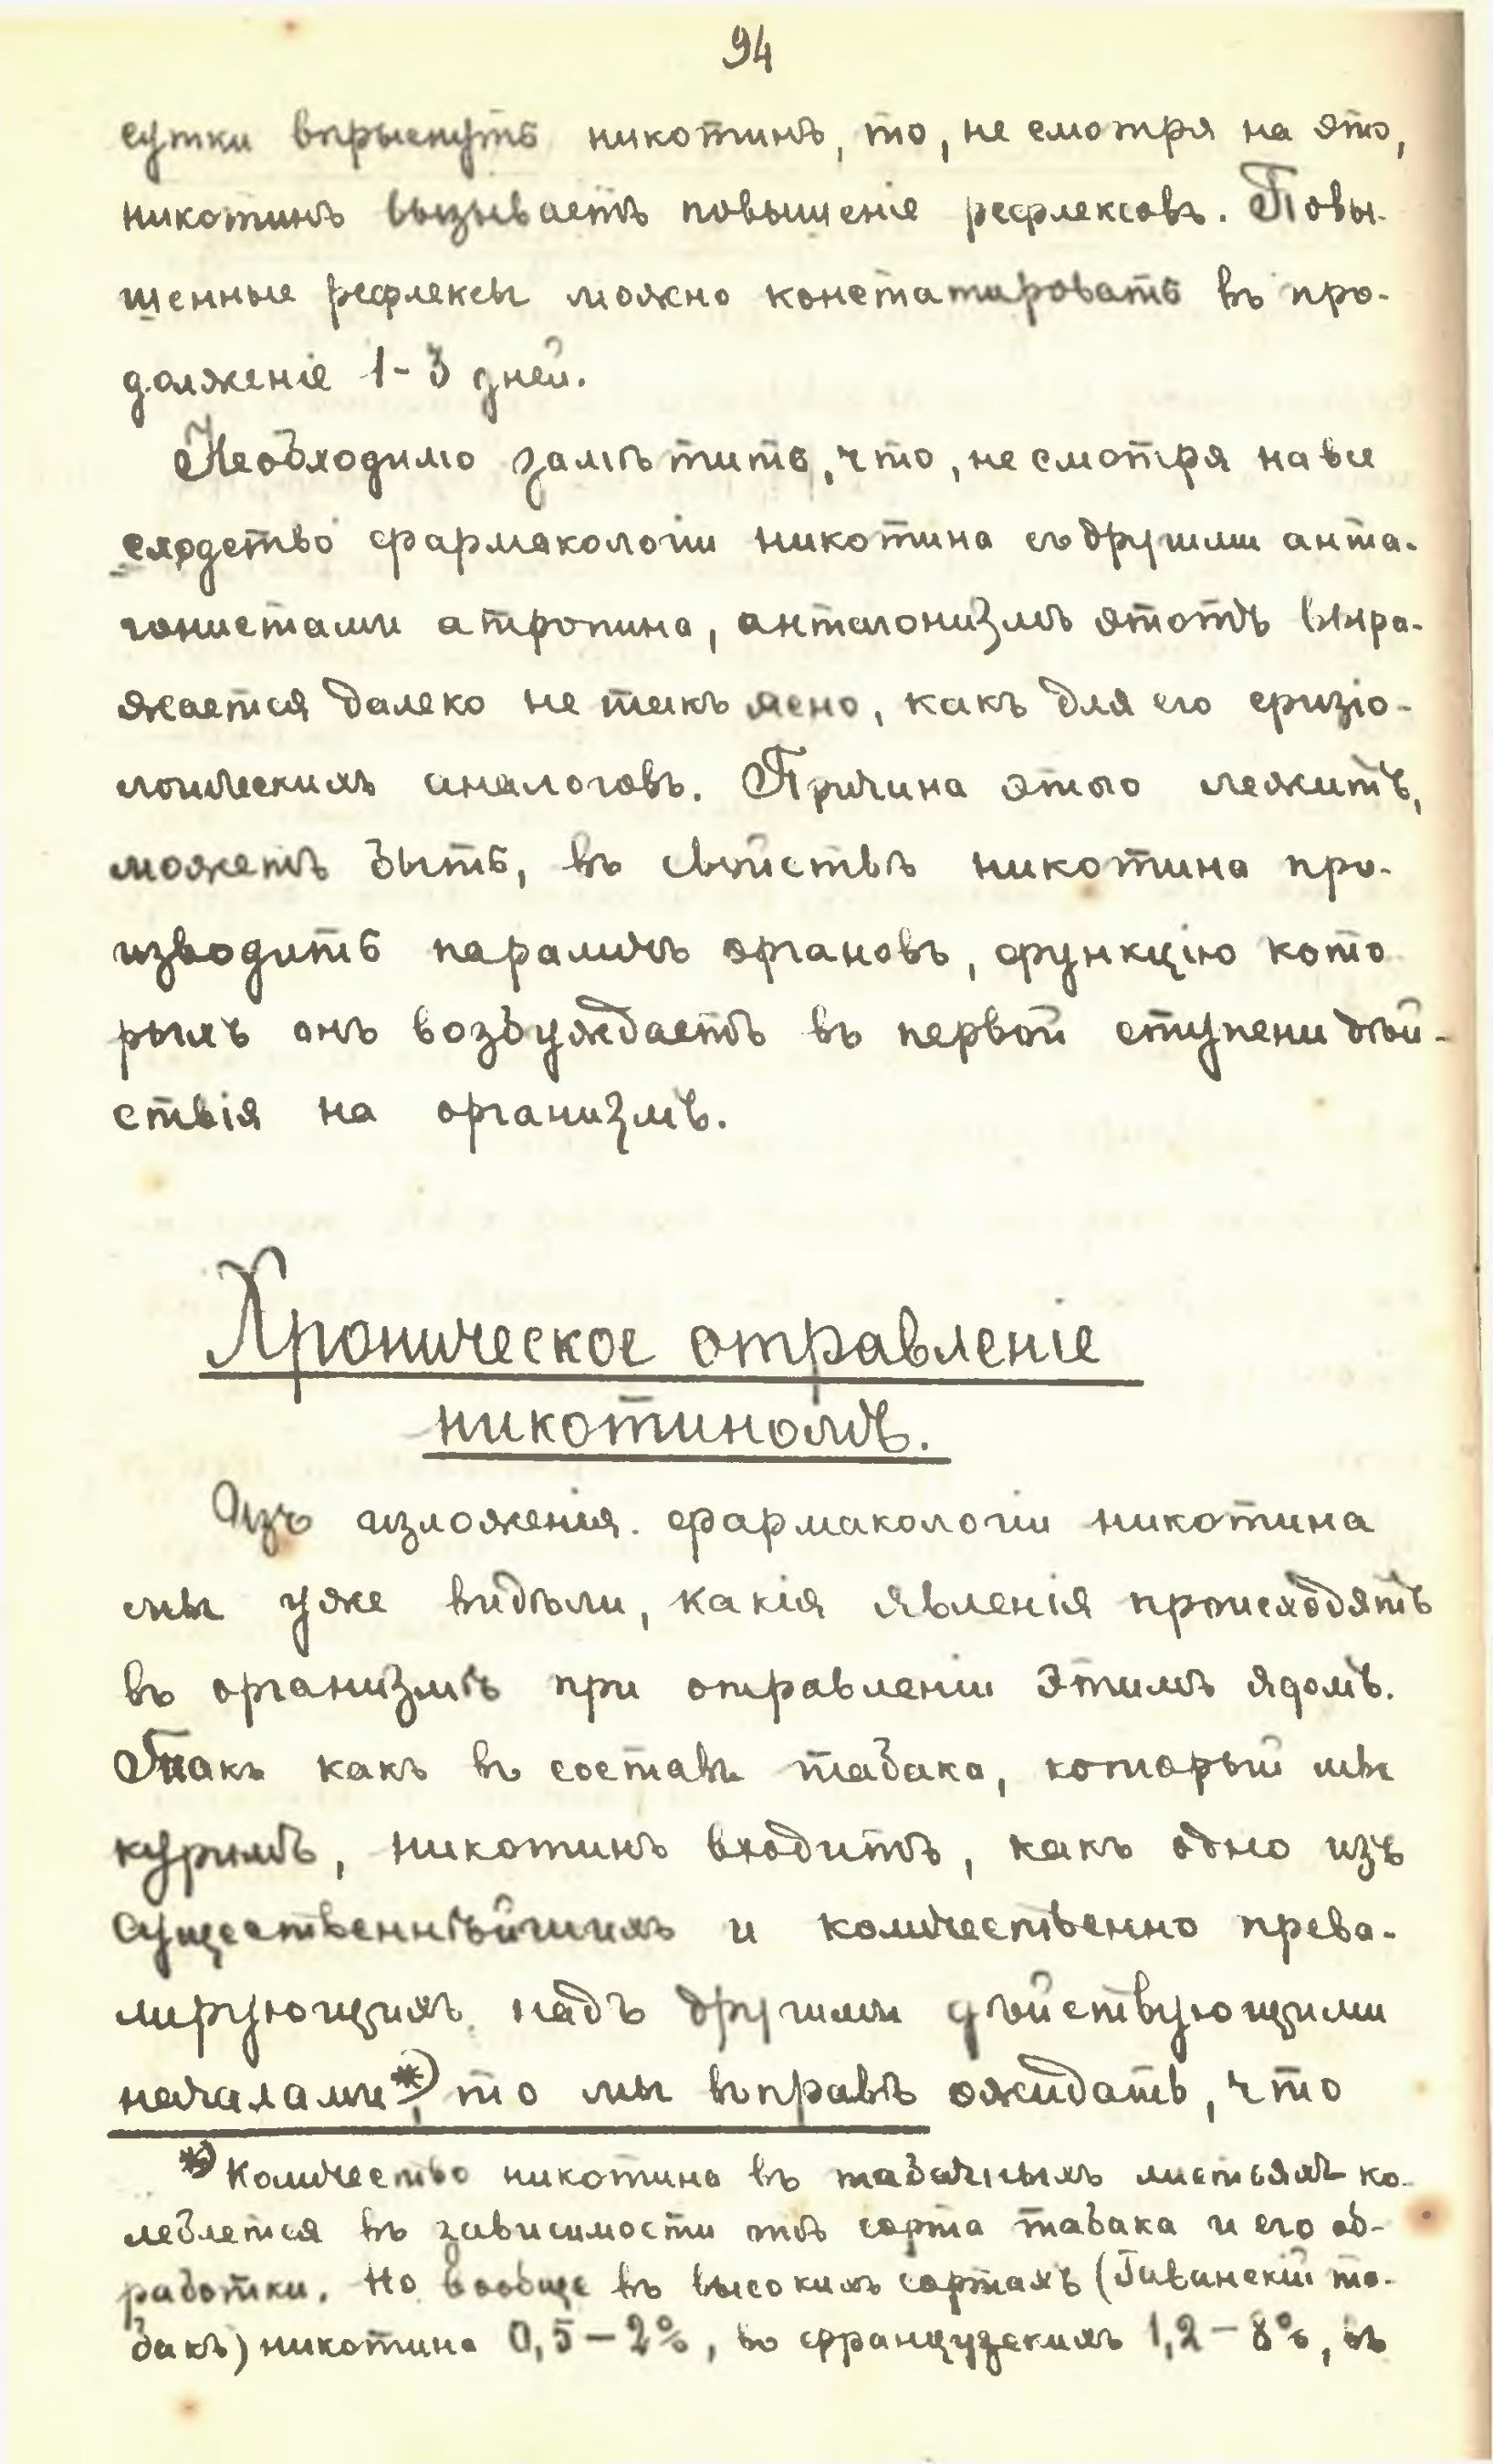 94
сутки впрыснуть никотинъ, то, не смотря на это,
никотинъ вызываетъ повышеніе рефлексовъ. Повы-
шенные рефлексы можно констатировать въ про-
долженіе 1-3 дней.
Необходимо замѣтить, что, не смотря на все
сходство фармакологіи никотина съ другими анта-
гонистами атропина, антагонизмъ этотъ выра-
жается далеко не такъ ясно, какъ для его физіо-
логическихъ аналоговъ. Причина этого лежитъ,
можетъ быть, въ свойствѣ никотина про-
изводить параличъ органовъ, функцію кото
рыхъ онъ возбуждаетъ въ первой ступени дѣй-
ствія на организмъ.
Хроническое отравленіе
никотиномъ.
Изъ изложенія фармакологіи никотина
мы уже видѣли, какія явленія происходятъ
въ организмѣ при отравленіи этимъ ядомъ.
Такъ какъ въ составъ табака, который мы
куримъ, никотинъ входитъ, какъ одно изъ
существеннѣйшихъ и количественно прева-
лирующихъ надъ другими дѣйствующими
началами*), то мы въправѣ ожидать, что
*) Количество никотина въ табачныхъ листьяхъ ко-
леблется въ зависимости отъ сорта табака и его об-
работки. Но вообще въ высокихъ сортахъ (Гаванскій та-
бакъ) никотина 0,5-2%, во французскихъ 1,2-8%, въ